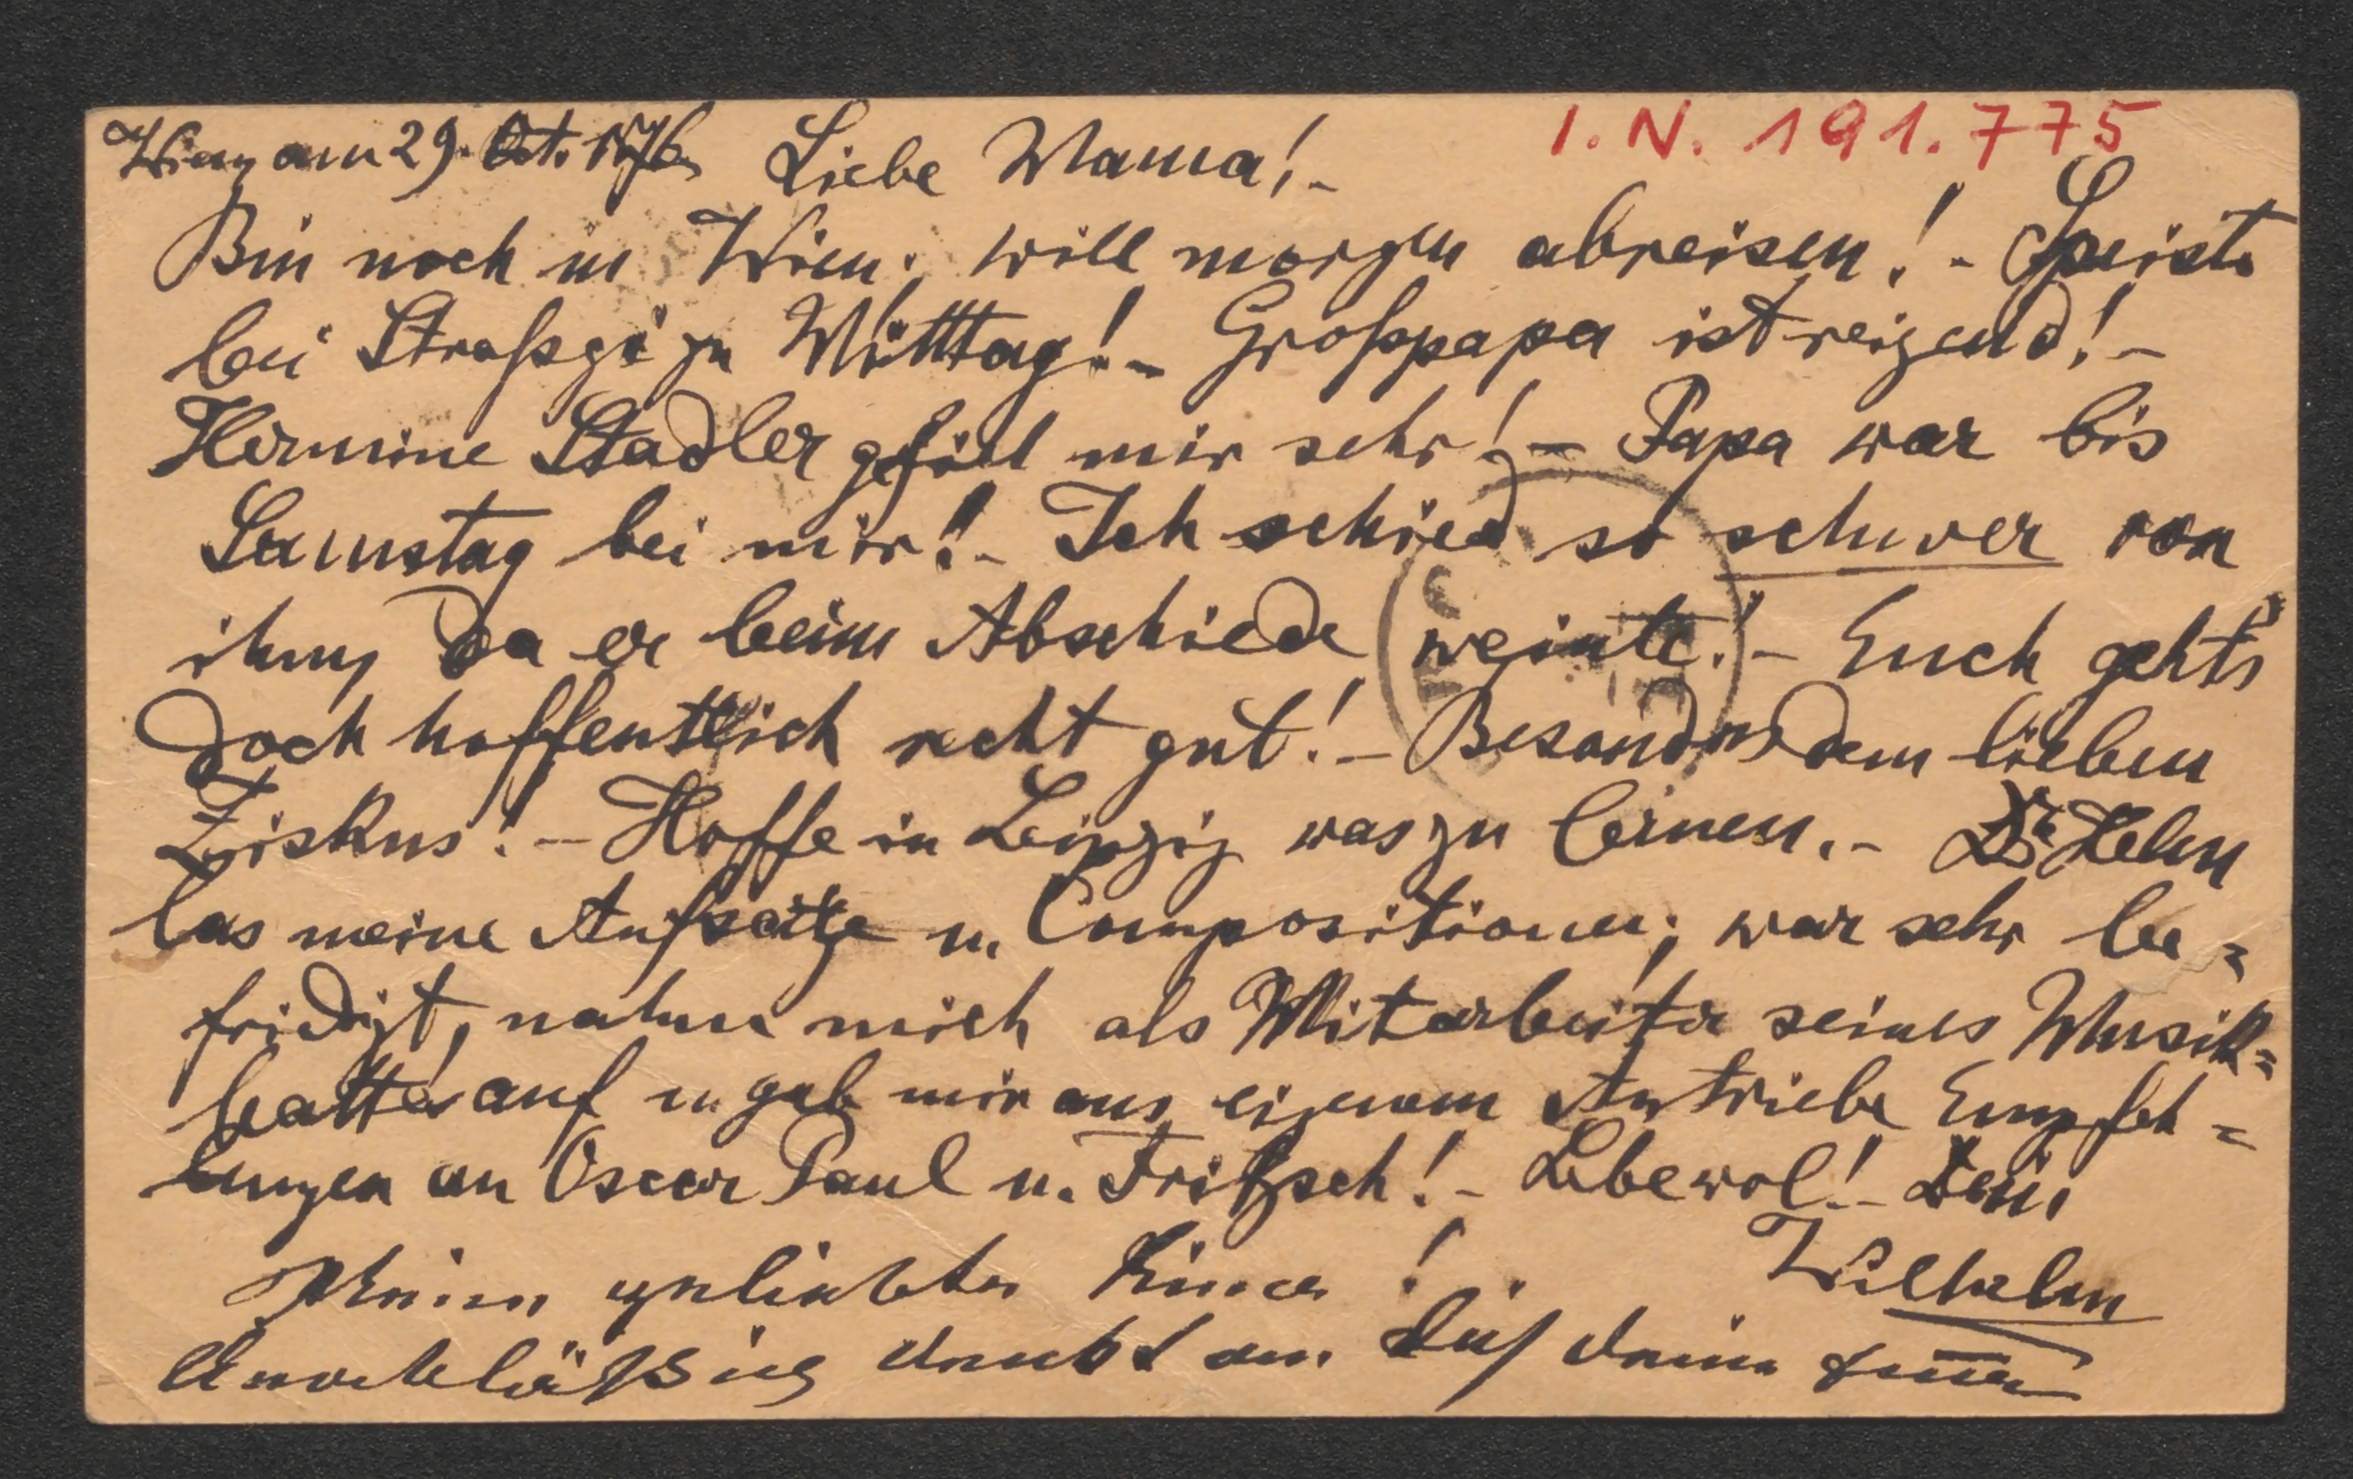 I. N. 191.775
Wien, am 29. Oct. 1876. Liebe Mama! -
Bin noch in Wien; will morgen abreisen! - Speiste
bei zu Mitttag! - Großpapa ist reizend! -
Hermine Stadler gefäll mir sehr! - Papa war bis
Samstag bei mir! - Ich schied so schwer von
ihm, da er beim Abschiede weinte! - Euch geht's
doch hoffentlich recht gut! - Besonders dem lieben
Ziskus! - Hoffe in Leipzig was zu lernen. - Dr. Helm
las meine Aufsätze u. Compositionen; war sehr be=
friedigt, nahm mich als Mitarbeiter seines Musik=
blattes auf u. gab mir aus eigenem Antriebe Empfeh=
lungen an Oscar Paul u. Fritzsch! - Lebewol! - Dein
Wilhelm
Meine geliebte !
denkt an Dich deine